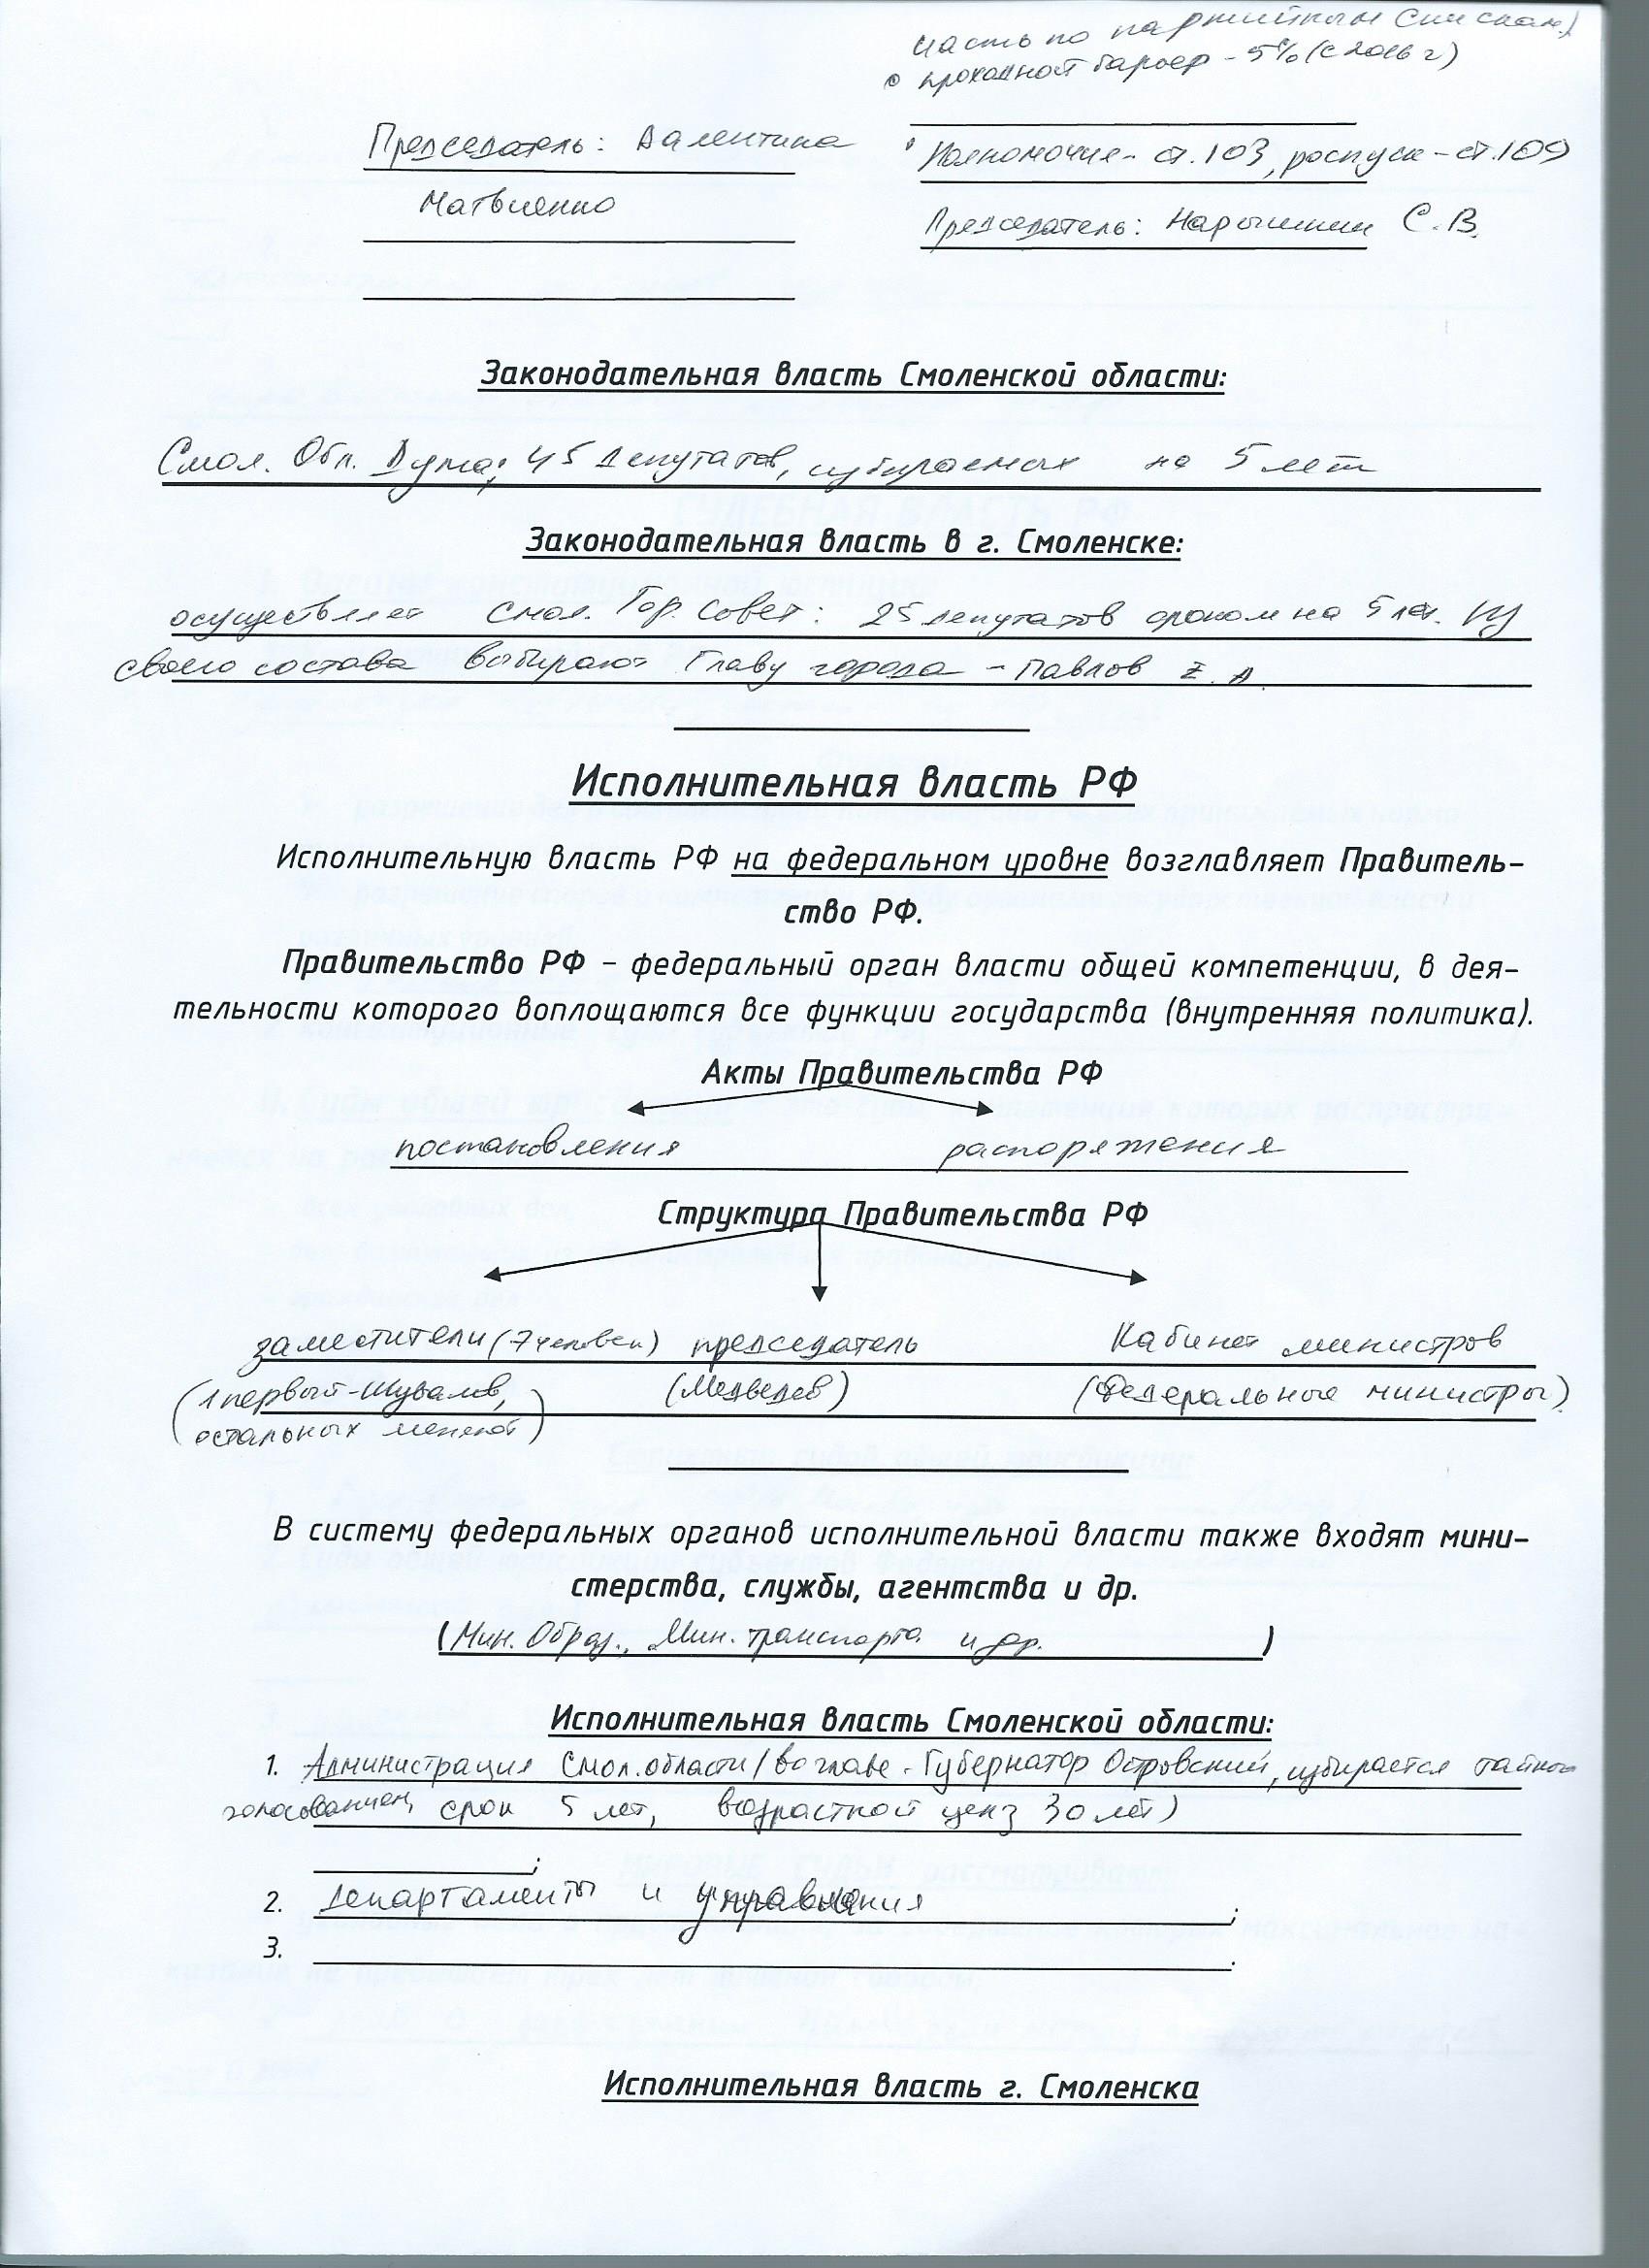 часть по партийным спискам)
проходной барьер - 5% (с 2016 г)
Председатель: Валентина
Матвиенко
Полномочия - ст. 103, роспуск - ст. 109
Председатель: Нарышкин С.В.
Законодательная власть Смоленской области:
Смол. Обл. Дума: 45 депутатов, избираемых на 5 лет
Законодательная власть в г. Смоленске:
осуществляет Смол. Гор. Совет: 25 депутатов сроком на 5 лет. Из
своего состава выбирают Главу города - Павлов Е. А.
Исполнительная власть РФ
Исполнительную власть РФ на федеральном уровне возглавляет Правитель-
ство РФ.
Правительство РФ – федеральный орган власти общей компетенции, в дея-
тельности которого воплощаются все функции государства (внутренняя политика).
Акты Правительства РФ
постановления распоряжения
Структура Правительства РФ
заместители (7 человек) председатель Кабинет министров
(1 первый - Шувалов, (Медведев) (Федеральные министры)
остальных меняют)
В систему федеральных органов исполнительной власти также входят мини-
стерства, службы, агентства и др.
(Мин. Образ., Мин. транспорта и др. )
Исполнительная власть Смоленской области:
1. Администрация Смол. области (во главе - Губернатор Островский, избирается тайным
голосованием, срок 5 лет, возрастной ценз 30 лет)
;
2. Департаменты и управления ;
3. .
Исполнительная власть г. Смоленска